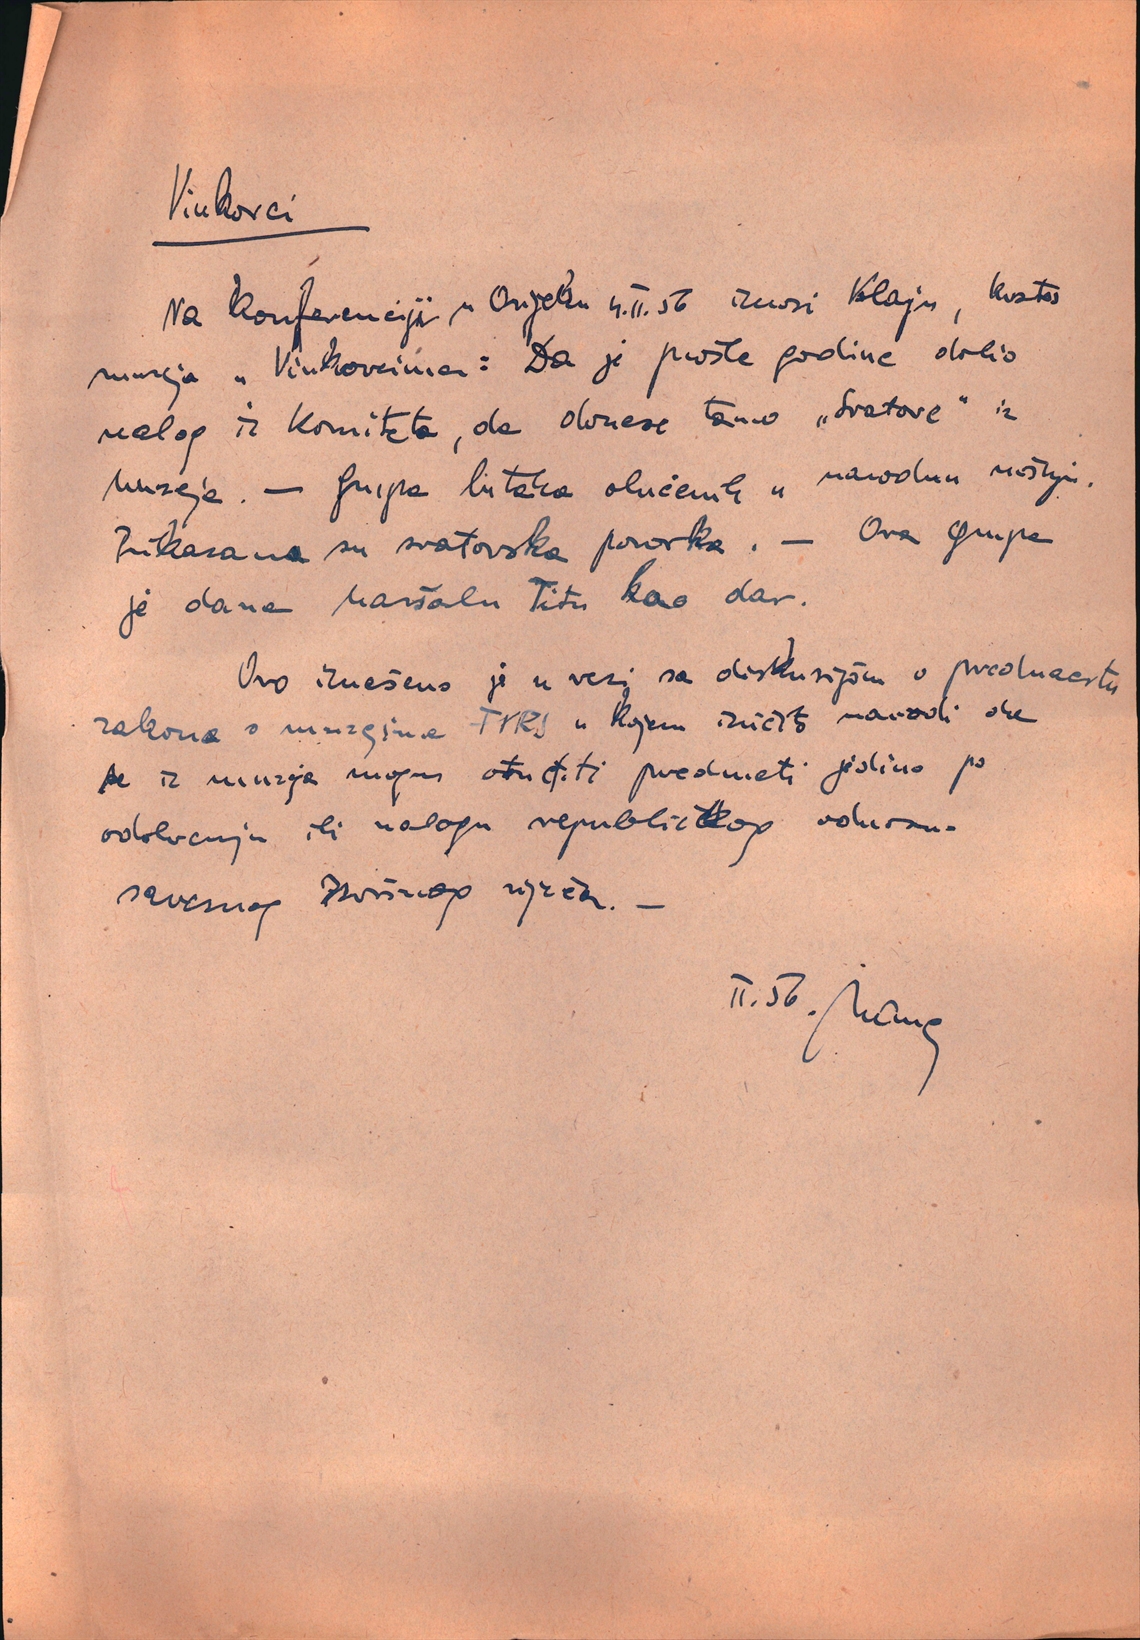 Vinkovci
Na konferenciji u Osijeku 4.II.56 iznosi Klajn, kustos
muzeja u Vinkovcima: Da je prošle godine dobio
nalog iz Komiteta, da donese tamo „Svatove" iz
muzeja. — Grupa lutaka obučenih u narodnu nošnju.
Prikazana su svatovska povorka. — Ova grupa
je dana Maršalu Titu kao dar.
Ovo iznešeno je u vezi sa diskusijom o prednacrtu
zakona o muzejima FNRJ u kojem izričito navodi da
se iz muzeja mogu otuđiti predmeti jedino po
odobrenju ili nalogu republičkog odnosno
saveznog Izvršnog vijeća. —
II.56.